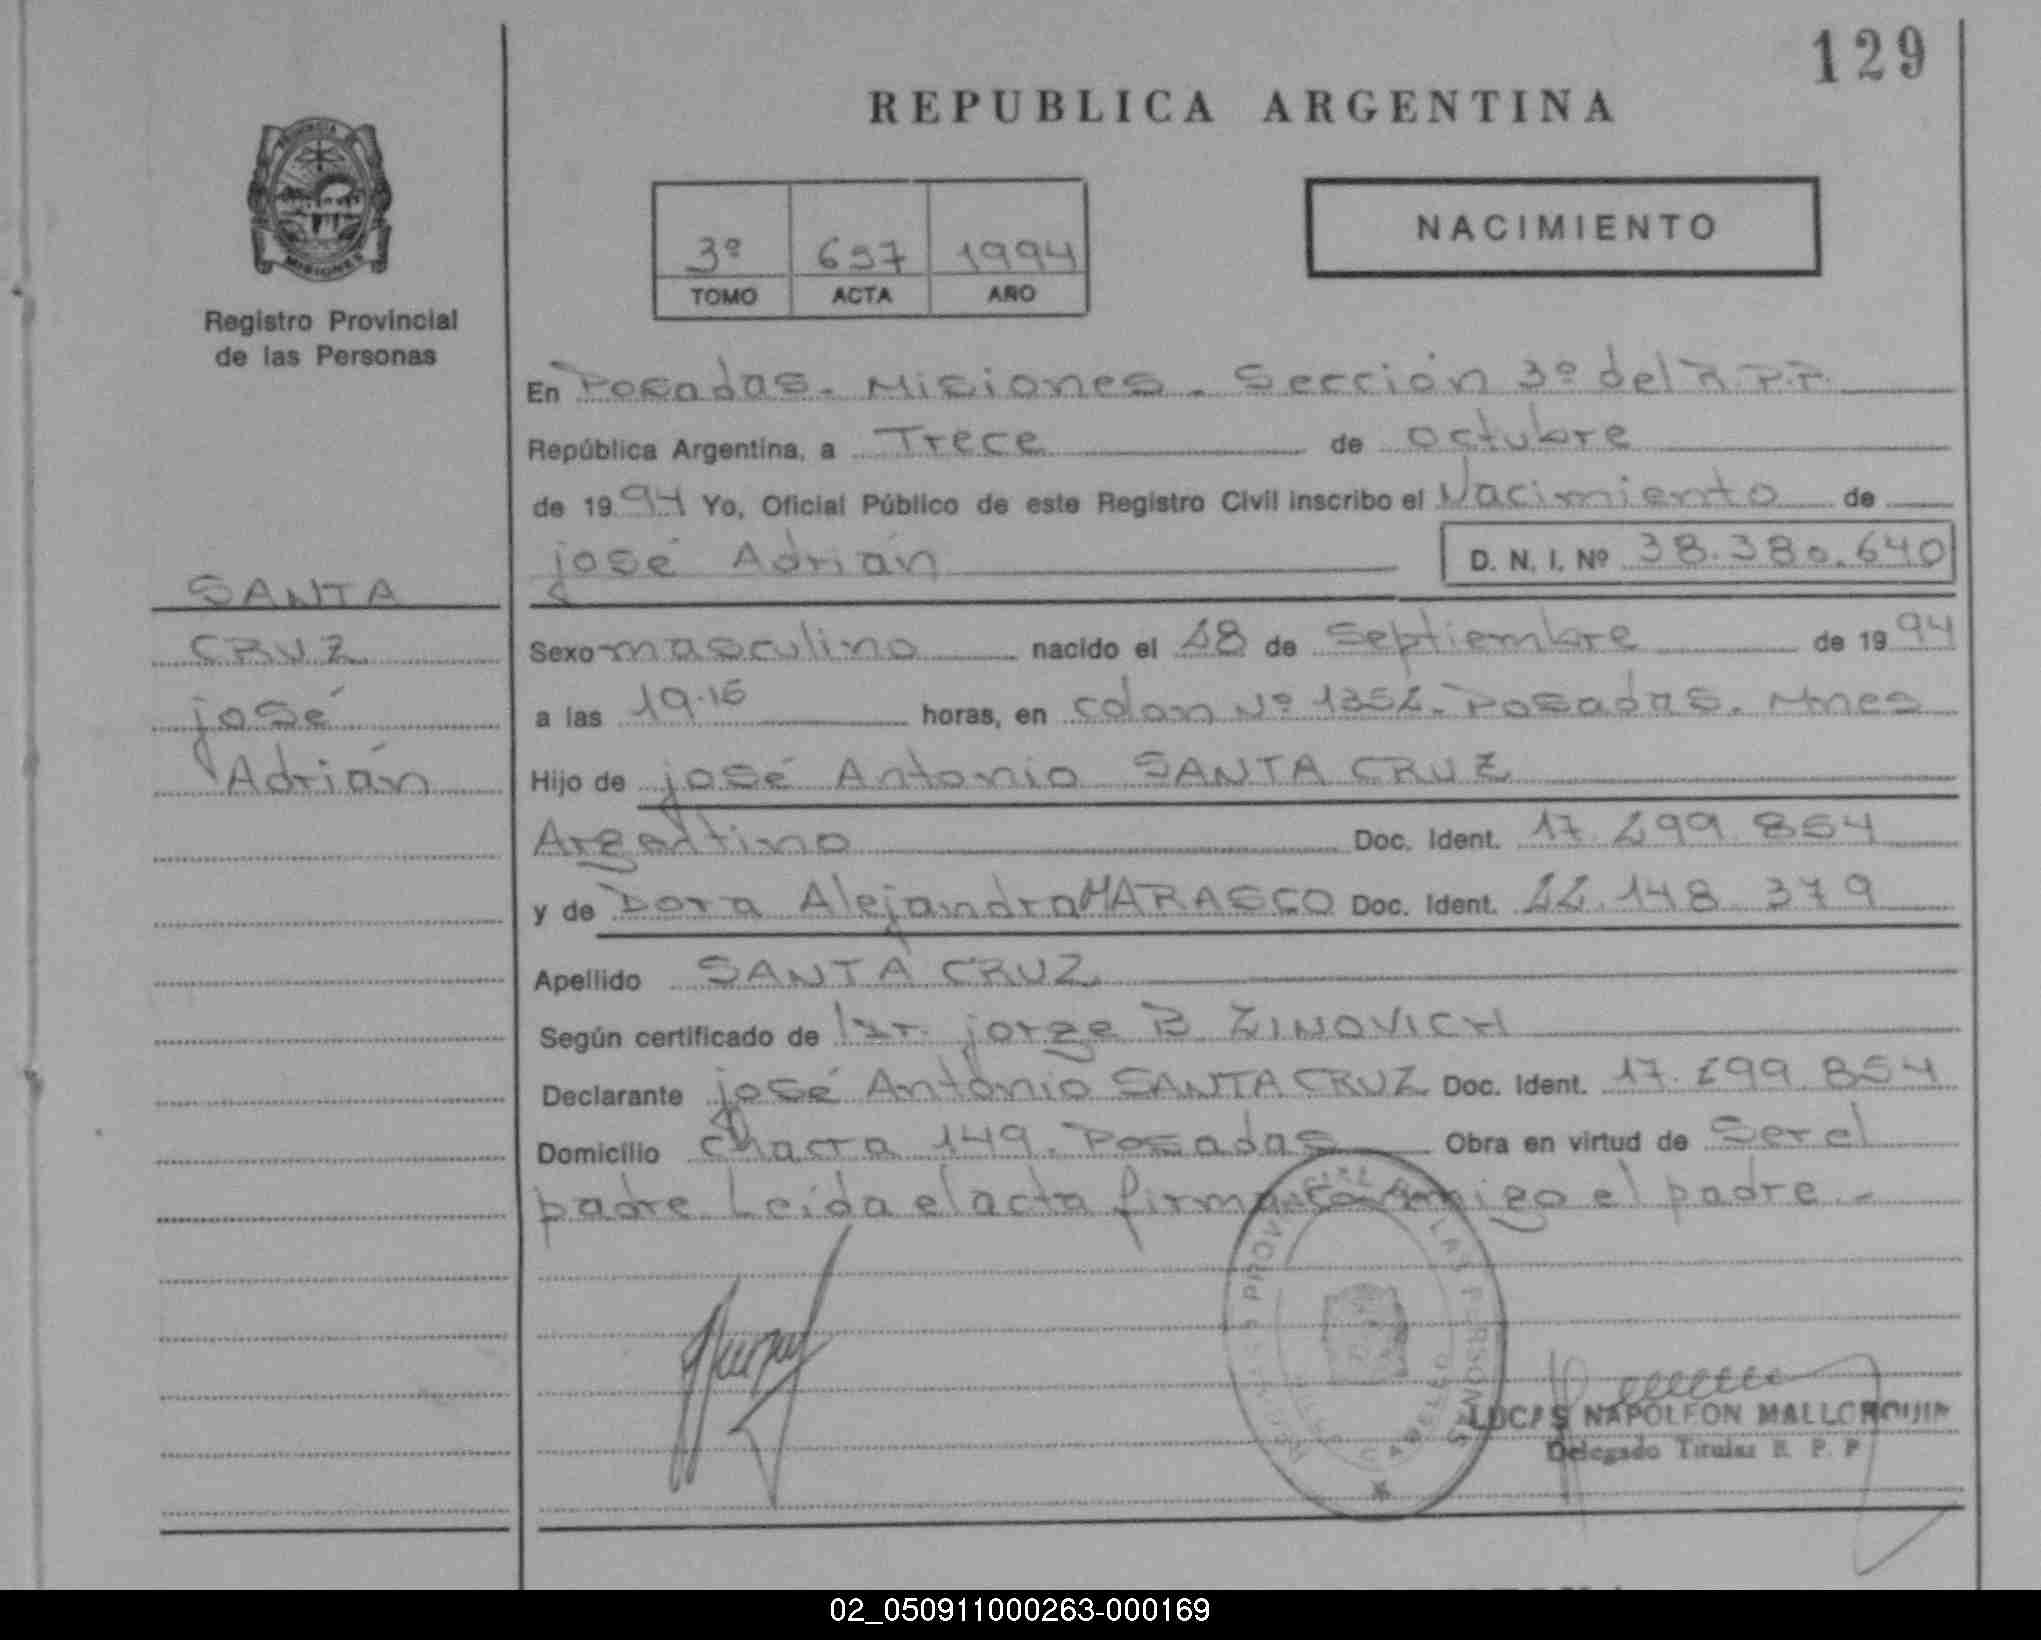 129
REPUBLICA ARGENTINA
NACIMIENTO
3º 697 1994
TOMO ACTA AÑO
Registro Provincial
de las Personas
En Posadas. Misiones. Sección 3º del R.P.P.
República Argentina, a Trece de octubre
de 1994 Yo, Oficial Público de este Registro Civil inscribo el Nacimiento de
josé Adrián D. N. I. Nº 38.380.640
SANTA
CRUZ
josé
Adrián
Sexo masculino nacido el 28 de Septiembre de 1994
a las 19.15 horas, en colon Nº 1352. Posadas. Mnes
Hijo de josé Antonio SANTA CRUZ
Argentino Doc. Ident. 17.299.854
y de Dora Alejandra MARASCO Doc. Ident. 22.148.379
Apellido SANTA CRUZ
Según certificado de jorge B ZINOVICH
Declarante josé Antonio SANTA CRUZ Doc. Ident. 17.299.854
Domicilio chacra 149. Posadas Obra en virtud de Ser el
padre Leída el acta firma conmigo el padre.-
PROVINCIAL DE LAS PERSONAS
LUCAS NAPOLEON MALLORQUIN
Delegado Titular R. P. P
02_050911000263-000169